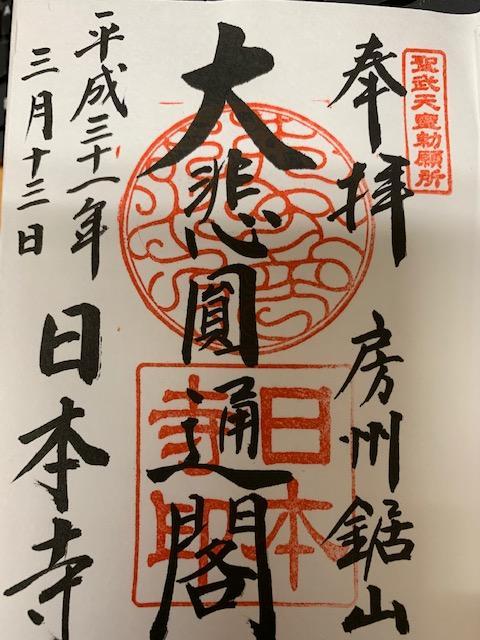 聖武天皇勅願所
奉拝　房州鋸山
大悲圓通閣
日本寺印
平成三十一年
三月十三日
日本寺